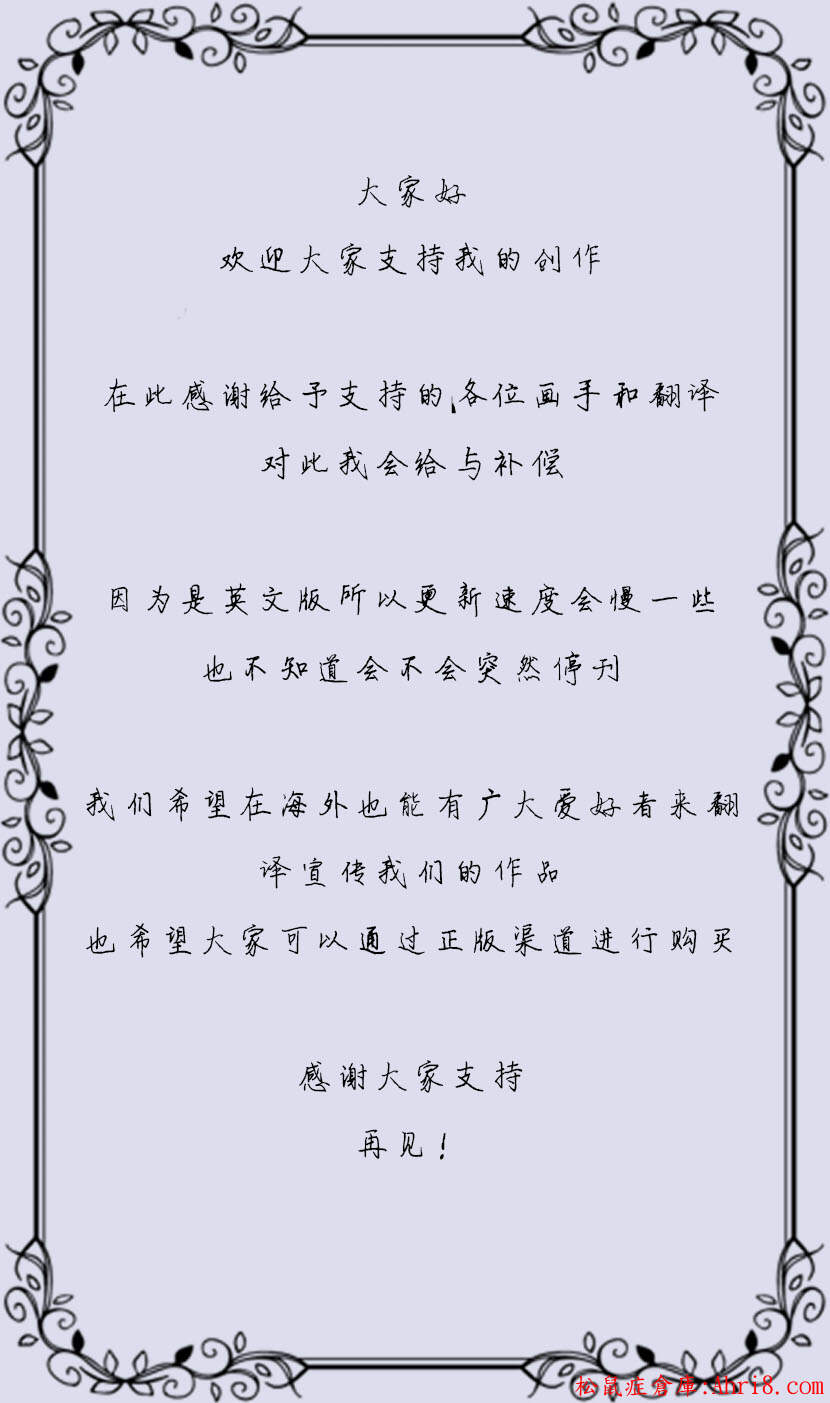 大家好
欢迎大家支持我的创作
在此感谢给予支持的,各位画手和翻译
对此我会给与补偿
因为是英文版所以更新速度会慢一些
也不知道会不会突然停刊
我们希望在海外也能有广大爱好者来翻
译宣传我们的作品
也希望大家可以通过正版渠道进行购买
感谢大家支持
再见!
松鼠症倉庫:Ahri8.com